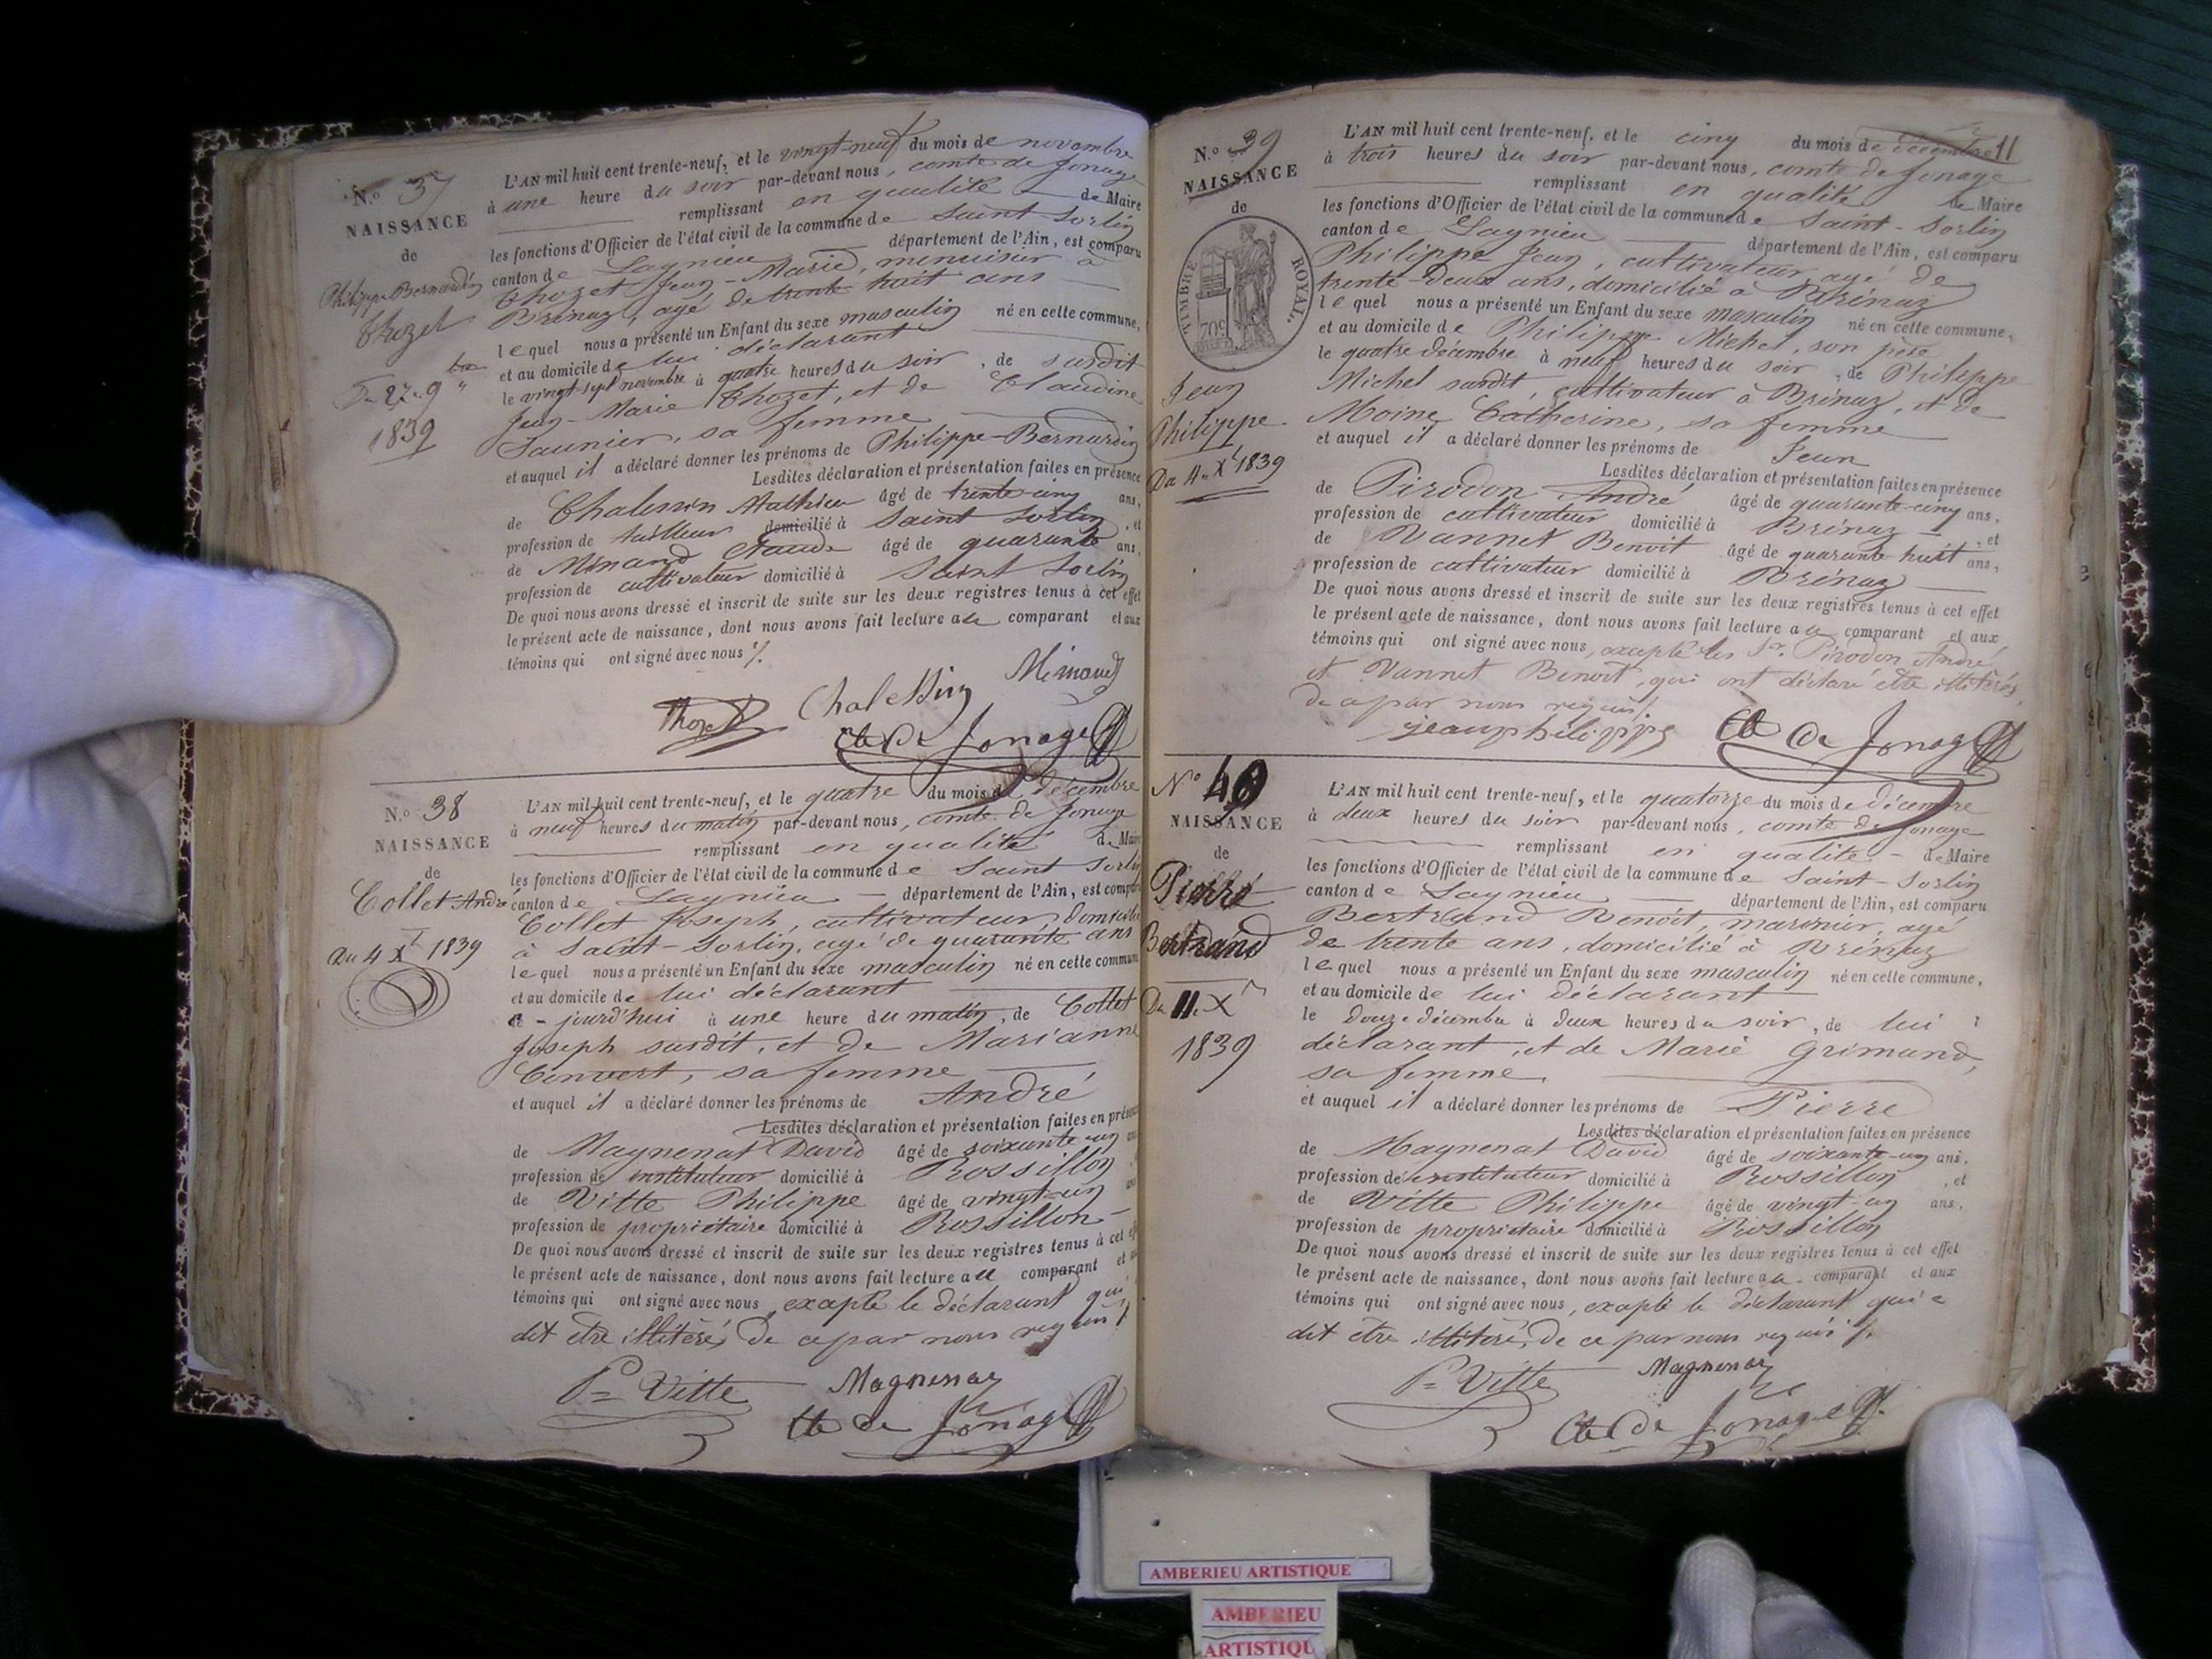 N.o 37
NAISSANCE
de
Philippe Bernardin
Thozet
Du 27 9bre
1839
L'AN mil huit cent trente-neuf, et le vingt-neuf du mois de novembre
à une heure du soir par-devant nous, comte de Jonage
remplissant en qualité de Maire
les fonctions d'Officier de l'état civil de la commune de Saint Sorlin
canton de Lagnieu département de l'Ain, est comparu
Thozet Jean-Marie, menuisier à
Brénaz, agé de trente huit ans
lequel nous a présenté un Enfant du sexe masculin né en cette commune,
et au domicile de lui déclarant
le vingt-sept novembre à quatre heures du soir, de susdit
Jean-Marie Thozet, et de Claudine
Jaunier, sa femme
et auquel il a déclaré donner les prénoms de Philippe-Bernardin
Lesdites déclaration et présentation faites en présence
de Chalessin Mathieu âgé de trente-cinq ans,
profession de tailleur domicilié à Saint Sorlin, et
de Minand Claude âgé de quarante ans,
profession de cultivateur domicilié à Saint Sorlin
De quoi nous avons dressé et inscrit de suite sur les deux registres tenus à cet effet
le présent acte de naissance, dont nous avons fait lecture au comparant et aux
témoins qui ont signé avec nous ./.
Thozet Chalessin Minand
Cte De Jonage
N.o 38
NAISSANCE
de
Collet André
Du 4 Xb 1839
L'AN mil huit cent trente-neuf, et le quatre du mois de décembre
à neuf heures du matin par-devant nous, comte de Jonage
remplissant en qualité de Maire
les fonctions d'Officier de l'état civil de la commune de Saint Sorlin
canton de Lagnieu département de l'Ain, est comparu
Collet Joseph, cultivateur, domicilié
à Saint-Sorlin, agé de quarante ans
lequel nous a présenté un Enfant du sexe masculin né en cette commune
et au domicile de lui déclarant
ce-jourd'hui à une heure du matin, de Collet
Joseph susdit, et de Marianne
Convert, sa femme
et auquel il a déclaré donner les prénoms de André
Lesdites déclaration et présentation faites en présence
de Magnenat David âgé de soixante-un ans
profession de instituteur domicilié à Rossillon
de Vitte Philippe âgé de vingt-un ans
profession de propriétaire domicilié à Rossillon
De quoi nous avons dressé et inscrit de suite sur les deux registres tenus à cet effet
le présent acte de naissance, dont nous avons fait lecture au comparant et aux
témoins qui ont signé avec nous, excepté le déclarant qui
dit être illitéré, de ce par nous requis ./.
Pre Vitte Magnenat
Cte De Jonage
N.o 39
NAISSANCE
de
TIMBRE ROYAL.
70c
Jean
Philippe
Du 4 Xb 1839
11
L'AN mil huit cent trente-neuf, et le cinq du mois de décembre
à trois heures du soir par-devant nous, comte de Jonage
remplissant en qualité de Maire
les fonctions d'Officier de l'état civil de la commune de Saint-Sorlin
canton de Lagnieu département de l'Ain, est comparu
Philippe Jean, cultivateur, agé de
trente-deux ans, domicilié à Brénaz
lequel nous a présenté un Enfant du sexe masculin né en cette commune,
et au domicile de Philippe Michel, son père
le quatre décembre à neuf heures du soir, de Philippe
Michel susdit, cultivateur à Brénaz, et de
Moine Catherine, sa femme
et auquel il a déclaré donner les prénoms de Jean
Lesdites déclaration et présentation faites en présence
de Pirodon André âgé de quarante-cinq ans,
profession de cultivateur domicilié à Brénaz, et
de Vannet Benoit âgé de quarante huit ans,
profession de cultivateur domicilié à Brénaz
De quoi nous avons dressé et inscrit de suite sur les deux registres tenus à cet effet
le présent acte de naissance, dont nous avons fait lecture au comparant et aux
témoins qui ont signé avec nous, excepté les Srs Pirodon André
et Vannet Benoit, qui ont déclaré être illitérés,
de ce par nous requis ./.
jean philippe Cte De Jonage
No 40
NAISSANCE
de
Pierre
Bertrand
Du 11 Xbr
1839
L'AN mil huit cent trente-neuf, et le quatorze du mois de décembre
à deux heures du soir par-devant nous, comte de Jonage
remplissant en qualité de Maire
les fonctions d'Officier de l'état civil de la commune de Saint-Sorlin
canton de Lagnieu département de l'Ain, est comparu
Bertrand Benoit, marinier, agé
de trente ans, domicilié à Brénaz
lequel nous a présenté un Enfant du sexe masculin né en cette commune,
et au domicile de lui déclarant
le douze décembre à deux heures du soir, de lui
déclarant, et de Marie Grimand,
sa femme
et auquel il a déclaré donner les prénoms de Pierre
Lesdites déclaration et présentation faites en présence
de Magnenat David âgé de soixante-un ans,
profession de instituteur domicilié à Rossillon, et
de Vitte Philippe âgé de vingt-un ans,
profession de propriétaire domicilié à Rossillon
De quoi nous avons dressé et inscrit de suite sur les deux registres tenus à cet effet
le présent acte de naissance, dont nous avons fait lecture au comparant et aux
témoins qui ont signé avec nous, excepté le déclarant qui a
dit être illitéré, de ce par nous requis ./.
Pre Vitte Magnenat
Cte De Jonage
AMBERIEU ARTISTIQUE
AMBERIEU
ARTISTIQU